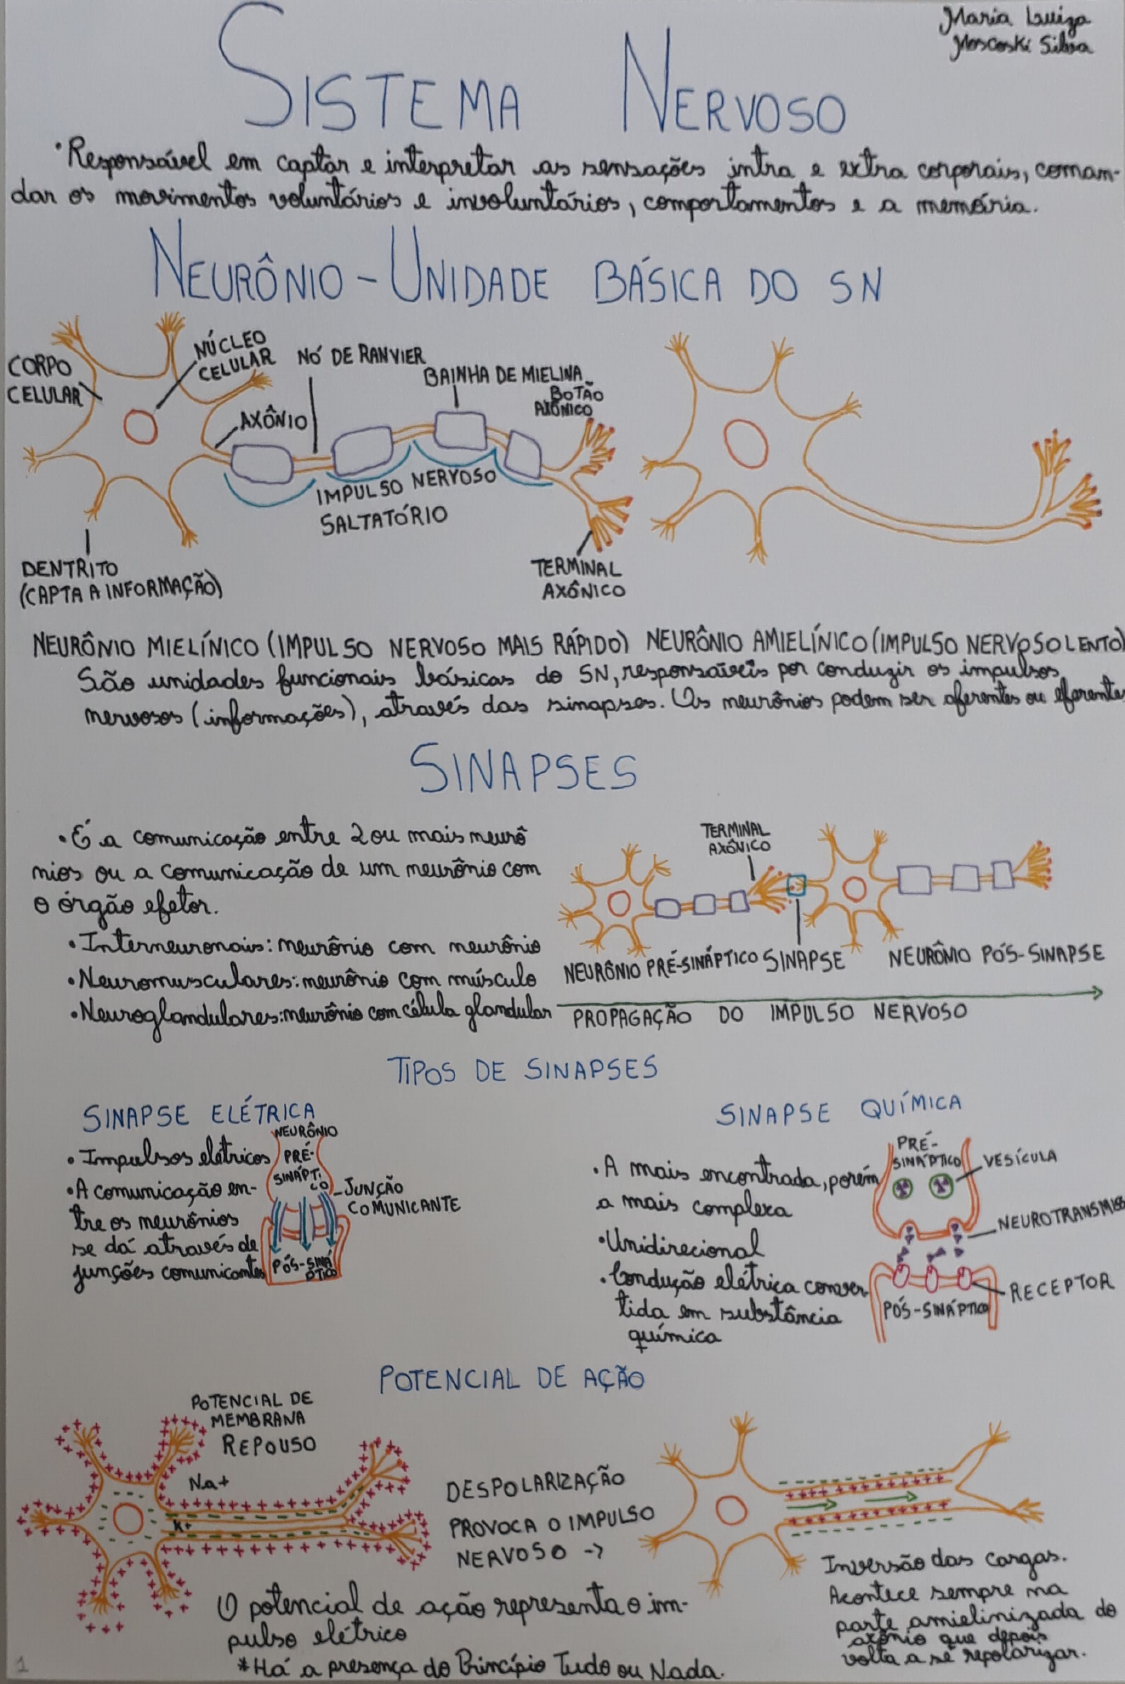 Maria Luiza
Moscoski Silva
SISTEMA NERVOSO
•Responsável em captar e interpretar as sensações intra e extra corporais, coman-
dar os movimentos voluntários e involuntários, comportamentos e a memória.
NEURÔNIO - UNIDADE BÁSICA DO SN
CORPO
CELULAR
NÚCLEO
CELULAR
AXÔNIO
NÓ DE RANVIER
BAINHA DE MIELINA
BOTÃO
AXÔNICO
IMPULSO NERVOSO
SALTATÓRIO
DENTRITO
(CAPTA A INFORMAÇÃO)
TERMINAL
AXÔNICO
NEURÔNIO MIELÍNICO (IMPULSO NERVOSO MAIS RÁPIDO)
NEURÔNIO AMIELÍNICO (IMPULSO NERVOSO LENTO)
São unidades funcionais básicas do SN, responsáveis por conduzir os impulsos
nervosos (informações), através das sinapses. Os neurônios podem ser aferentes ou eferentes
SINAPSES
•É a comunicação entre 2 ou mais neurô
nios ou a comunicação de um neurônio com
o órgão efetor.
•Interneuronais: neurônio com neurônio
•Neuromusculares: neurônio com músculo
•Neuroglandulares: neurônio com célula glandular
TERMINAL
AXÔNICO
NEURÔNIO PRÉ-SINÁPTICO
SINAPSE
NEURÔNIO PÓS-SINAPSE
PROPAGAÇÃO DO IMPULSO NERVOSO
TIPOS DE SINAPSES
SINAPSE ELÉTRICA
• Impulsos elétricos
•A comunicação en-
tre os neurônios
se dá através de
junções comunicantes
NEURÔNIO
PRÉ-
SINÁPTI
CO
JUNÇÃO
COMUNICANTE
PÓS-SINÁ
PTICO
SINAPSE QUÍMICA
•A mais encontrada, porém
a mais complexa
•Unidirecional
•Condução elétrica conver
tida em substância
química
PRÉ-
SINÁPTICO
VESÍCULA
NEUROTRANSMISS
RECEPTOR
PÓS-SINÁPTICO
POTENCIAL DE AÇÃO
POTENCIAL DE
MEMBRANA
REPOUSO
Na+
K+
DESPOLARIZAÇÃO
PROVOCA O IMPULSO
NERVOSO ->
O potencial de ação representa o im-
pulso elétrico
*Há a presença do Princípio Tudo ou Nada.
Inversão das cargas.
Acontece sempre na
parte amielinizada do
axônio que depois
volta a se repolarizar.
1